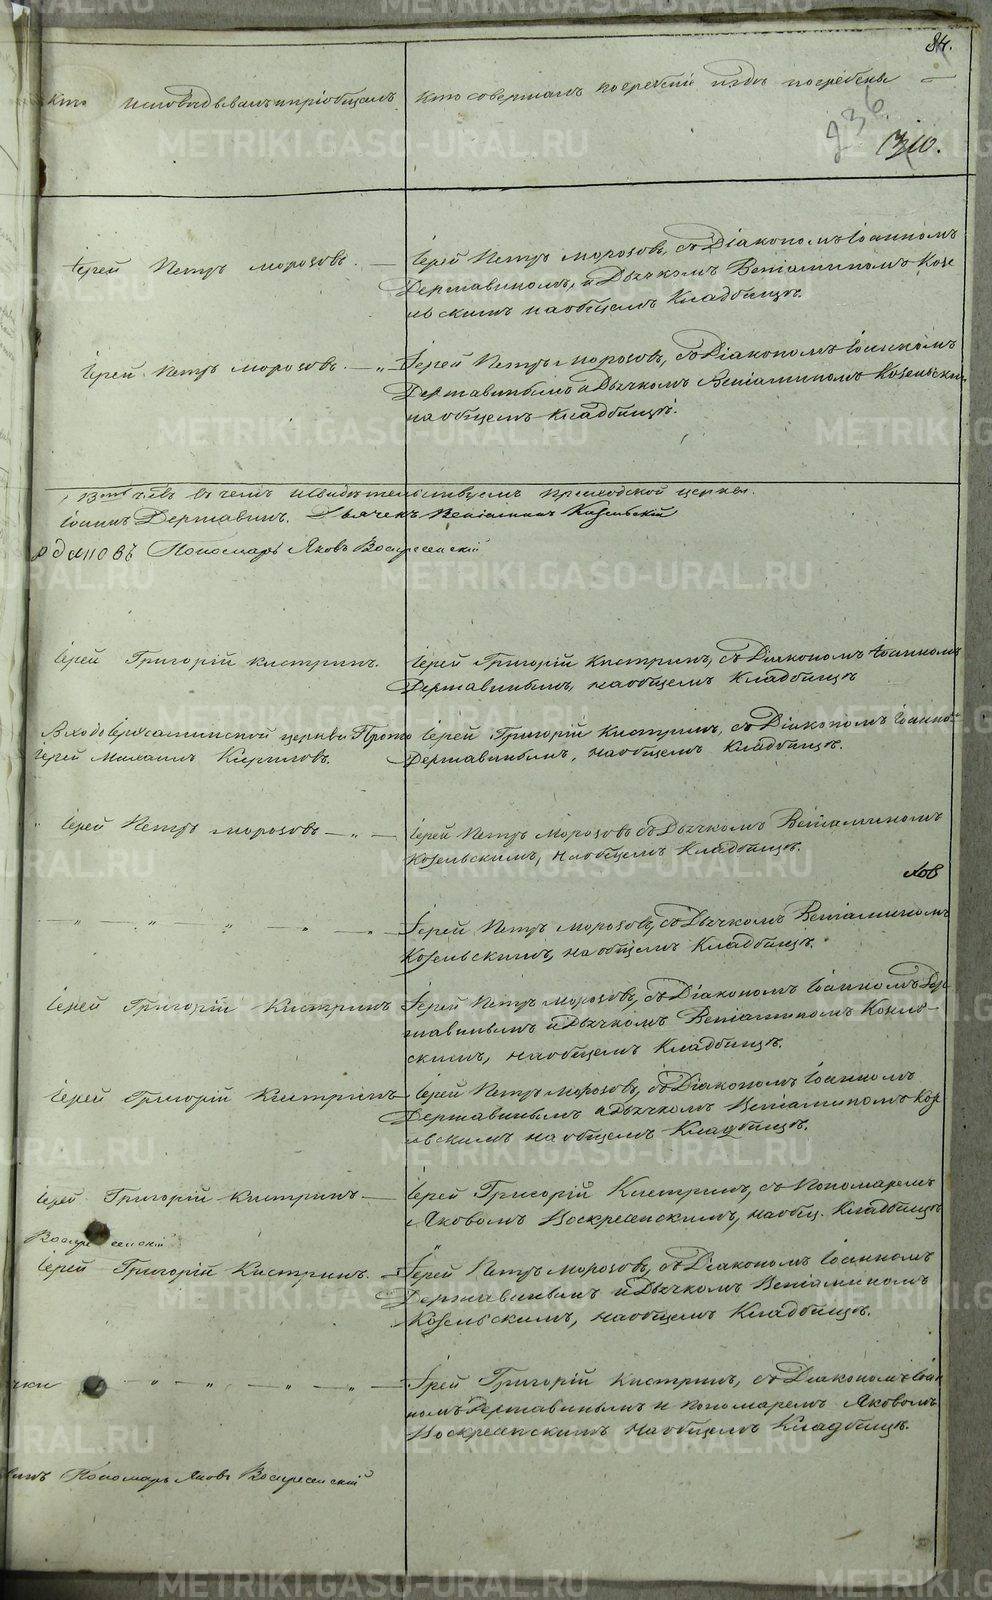 84.
кто исповѣдывалъ и пріобщалъ
кто совершалъ погребеніе и гдѣ погребены
236
310.
Іерей Петръ Морозовъ.
Іерей Петръ Морозовъ, съ Діакономъ Іоанномъ
Державинымъ, и Дьячкомъ Веніаминомъ Козе
льскимъ на общемъ Кладбищѣ.
Іерей Петръ Морозовъ. — „
Іерей Петръ Морозовъ, съ Діакономъ Іоанномъ
Державинымъ и Дьячкомъ Веніаминомъ Козельски
на общемъ Кладбищѣ.
въ чемъ и свидѣтельствуемъ приходской церкви.
Іоаннъ Державинъ. Дьячекъ Веніаминъ Козельскій
Пономарь Яковъ Воскресенскій
Іерей Григорій Кистринъ.
Іерей Григорій Кистринъ, съ Діакономъ Іоанномъ
Державинымъ, на общемъ Кладбищѣ
Входоіерусалимской церкви Прото
Іерей Михаилъ Кириловъ.
Іерей Григорій Кистринъ, съ Діакономъ Іоанно
Державинымъ, на общемъ Кладбищѣ.
Іерей Петръ Морозовъ — „ —
Іерей Петръ Морозовъ съ Дьячкомъ Веніаминомъ
Козельскимъ, на общемъ Кладбищѣ.
— „ — „ — „ — „ — „
Іерей Петръ Морозовъ, съ Дьячкомъ Веніаминомъ
Козельскимъ, на общемъ Кладбищѣ.
Іерей Григорій Кистринъ
Іерей Петръ Морозовъ, съ Діакономъ Іоанномъ Дер
жавинымъ и Дьячкомъ Веніаминомъ Козель
скимъ, на общемъ Кладбищѣ.
Іерей Григорій Кистринъ
Іерей Петръ Морозовъ, съ Діакономъ Іоанномъ
Державинымъ и Дьячкомъ Веніаминомъ Коз
ельскимъ на общемъ Кладбищѣ.
Іерей Григорій Кистринъ —
Іерей Григорій Кистринъ, съ Пономаремъ
Яковомъ Воскресенскимъ, на общ. Кладбищѣ
Воскресенскій
Іерей Григорій Кистринъ.
Іерей Петръ Морозовъ, съ Діакономъ Іоанномъ
Державинымъ и Дьячкомъ Веніаминомъ
Козельскимъ, на общемъ Кладбищѣ.
— „ — „ — „ — „ —
Іерей Григорій Кистринъ, съ Діакономъ Іоан
номъ Державинымъ и пономаремъ Яковомъ
Воскресенскимъ на общемъ Кладбищѣ.
Пономарь Яковъ Воскресенскій
METRIKI.GASO-URAL.RU